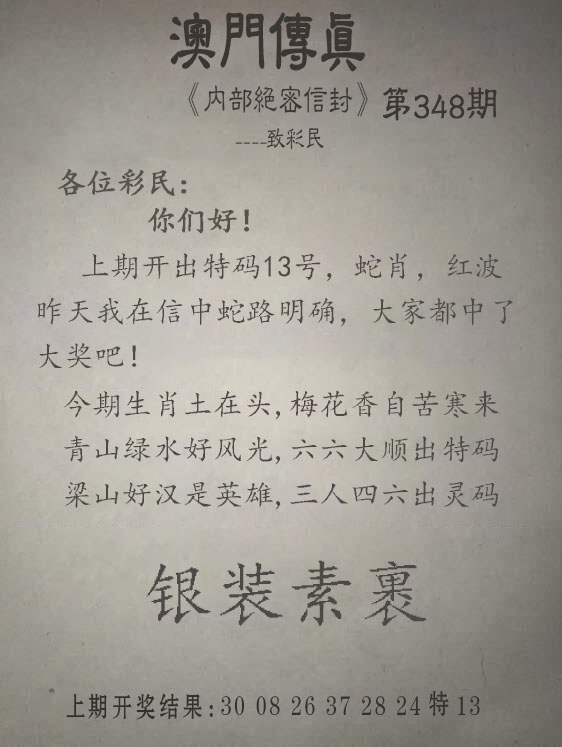 澳門傳眞
《内部絕密信封》第348期
----致彩民
各位彩民:
你们好!
上期开出特码13号，蛇肖，红波
昨天我在信中蛇路明确，大家都中了
大奖吧!
今期生肖土在头,梅花香自苦寒来
青山绿水好风光,六六大顺出特码
梁山好汉是英雄,三人四六出灵码
银装素裹
上期开奖结果:30 08 26 37 28 24 特 13